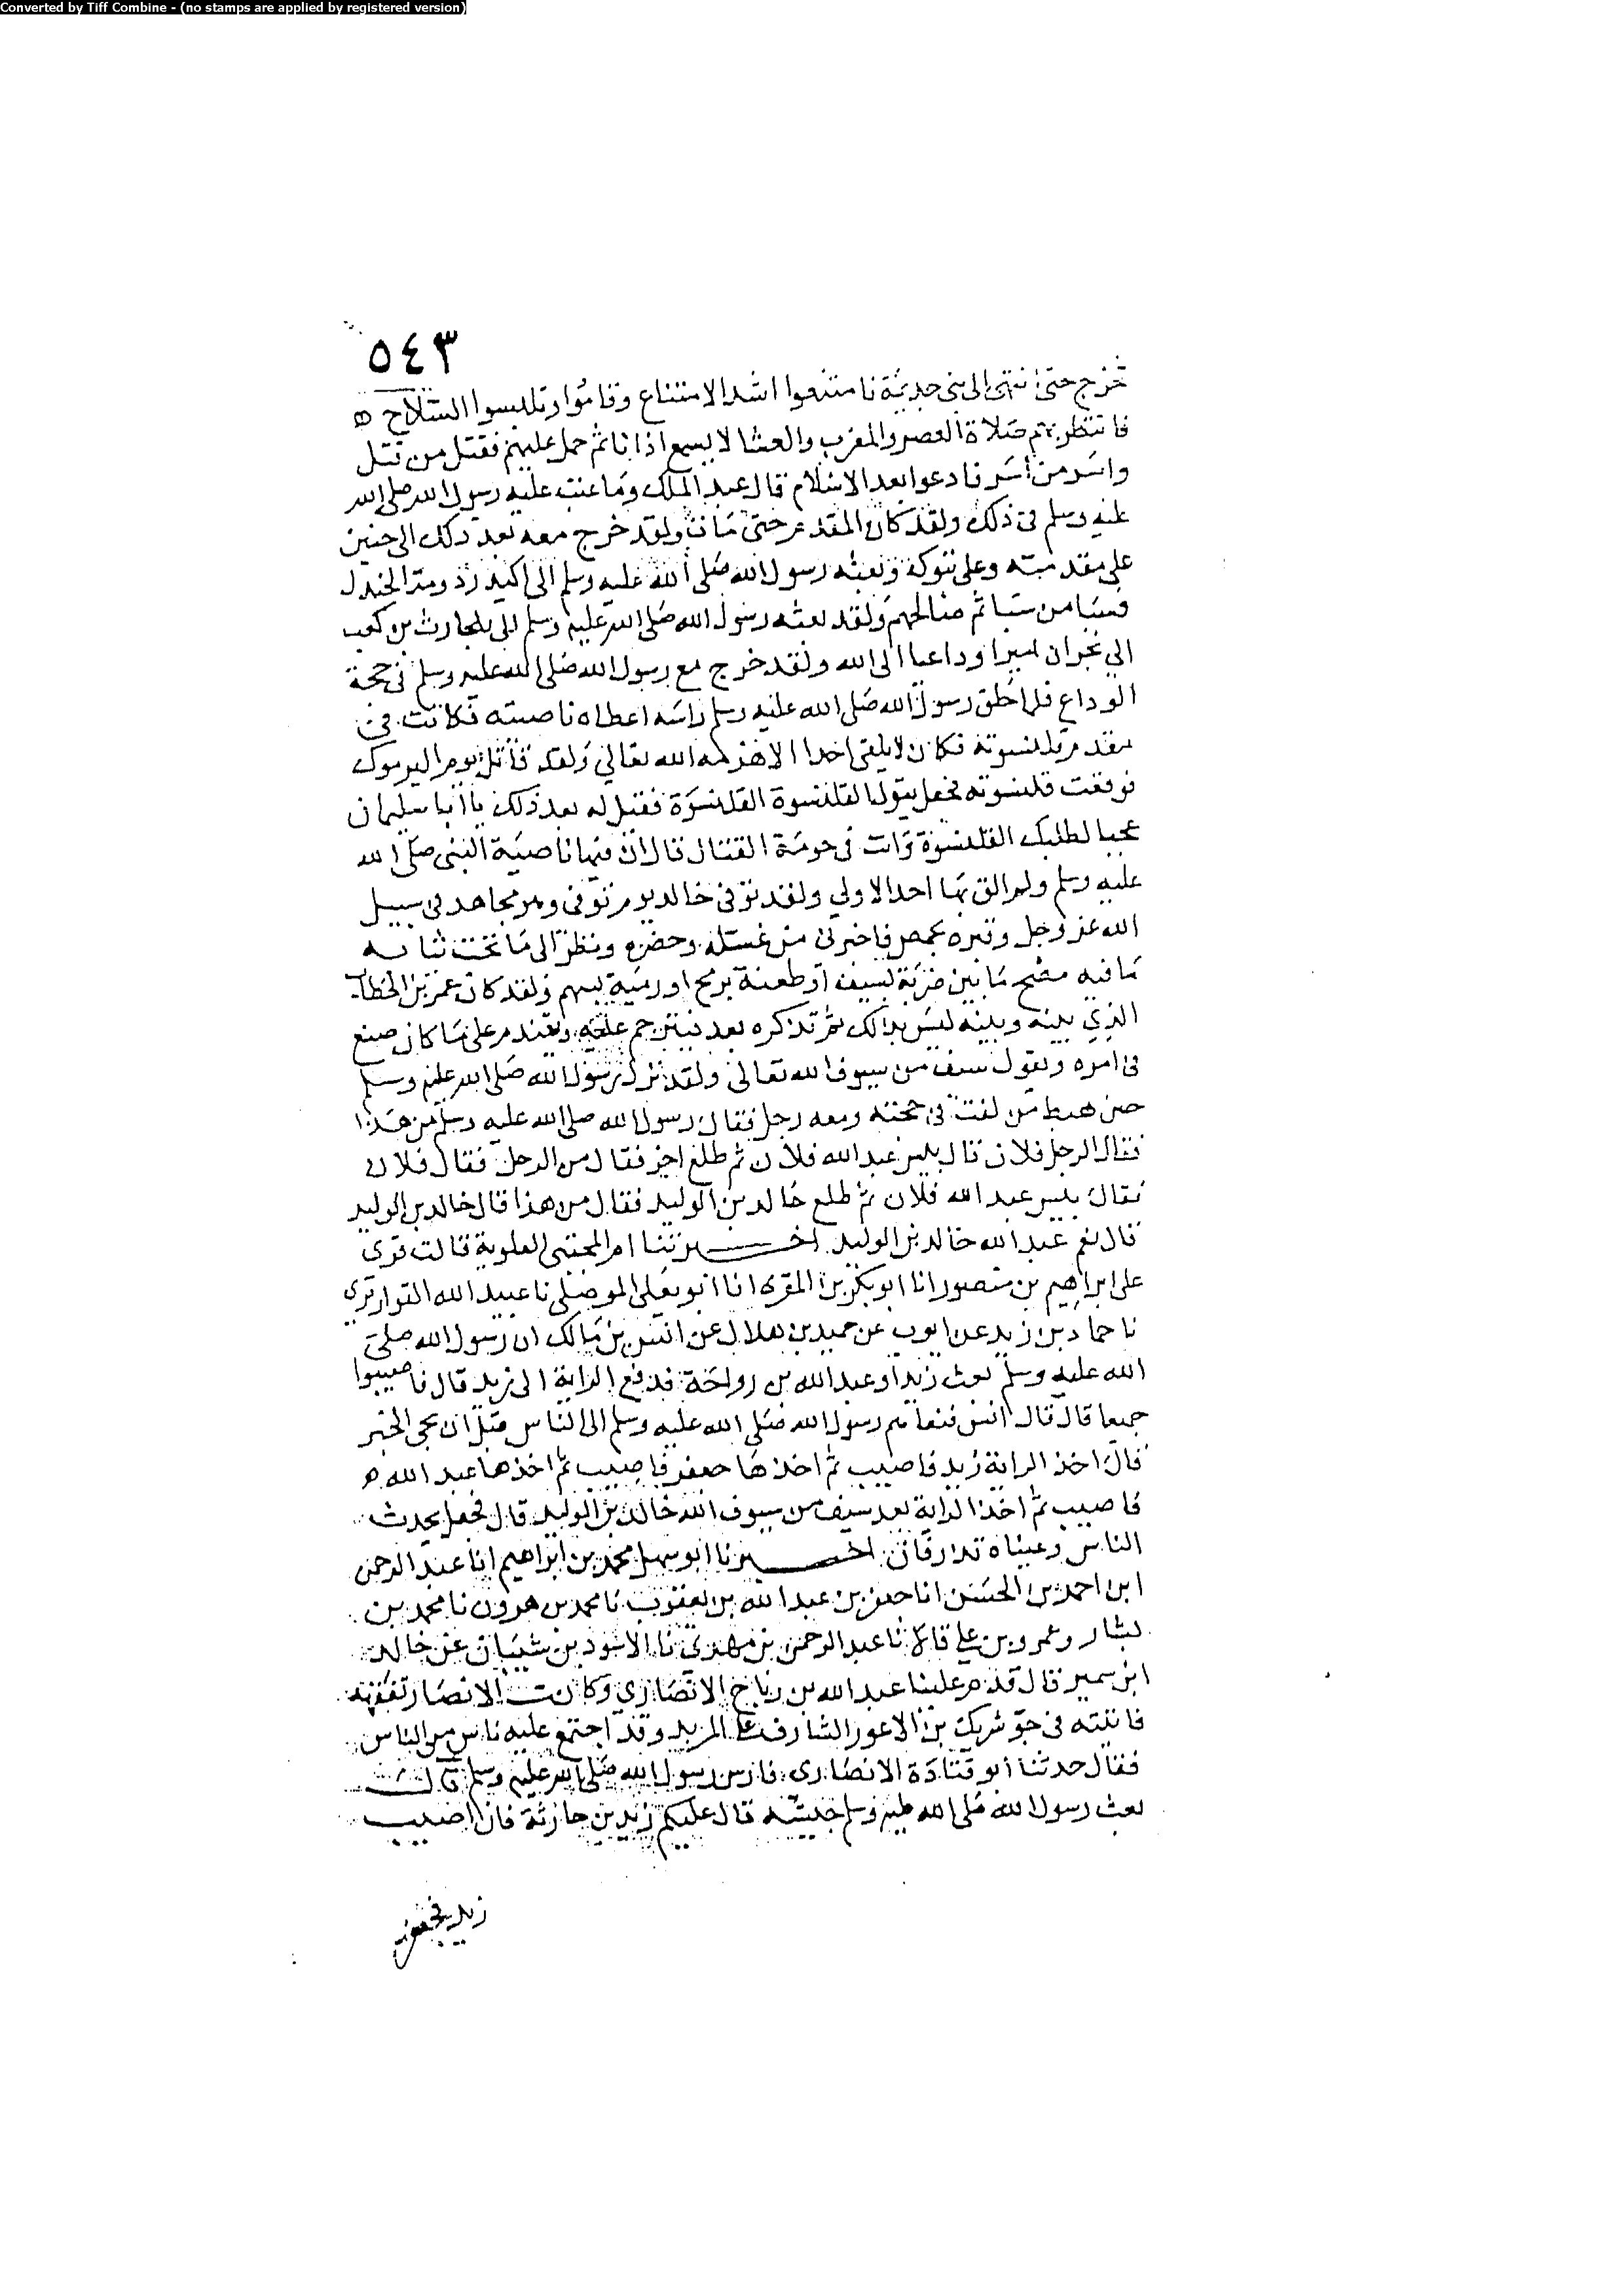 Converted by Tiff Combine - (no stamps are applied by registered version)
٥٤٣
خرج حتى انتهى الى بني جذيمة فامتنعوا اشد الامتناع وقاموا وتلبسوا السلاح ه
فانتظر بهم صلاة العصر والمغرب والعشا لا يسمع اذانا ثم حمل عليهم فقتل من قتل
واسر من اسر فادعوا بعد الاسلام قال عبد الملك وما عتب عليه رسول الله صلى الله
عليه وسلم في ذلك ولقد كان المقدم حتى مات ولقد خرج معه بعد ذلك الى حنين
على مقدمته وعلى تبوك وبعثه رسول الله صلى الله عليه وسلم الى اكيدر دومة الجندل
فسبا من سبا ثم صالحهم ولقد بعثه رسول الله صلى الله عليه وسلم الى بلحارث بن كعب
الى نجران اميرا وداعيا الى الله ولقد خرج مع رسول الله صلى الله عليه وسلم في حجة
الوداع فلما حلق رسول الله صلى الله عليه وسلم راسه اعطاه ناصيته فكانت في
مقدم قلنسوته فكان لا يلقى احدا الا هزمه الله تعالي ولقد قاتل يوم اليرموك
فوقعت قلنسوته فجعل يقول القلنسوة القلنسوة فقيل له بعد ذلك يا ابا سليمان
عجبا لطلبك القلنسوة وانت في حومة القتال قال ان فيها ناصية النبي صلى الله
عليه وسلم ولم الق بها احدا الا ولي ولقد توفي خالد يوم توفي وهو مجاهد في سبيل
الله عز وجل وقبره بحمص فاخبرني من غسله وحضره ونظر الى ما تحت ثيابه
ما فيه مصح ما بين ضربة بسيف او طعنة برمح او رمية بسهم ولقد كان عمر بن الخطاب
الذي بينه وبينه ليس بذالك ثم تذكره بعد فيترحم عليه ويتندم على ما كان صنع
في امره ويقول سيف من سيوف الله تعالى ولقد نزل رسول الله صلى الله عليه وسلم
حين هبط من لفت في حجته ومعه رجل فقال رسول الله صلى الله عليه وسلم من هذا
فقال الرجل فلان قال بئس عبد الله فلان ثم طلع اخر فقال من الرجل فقال فلان
فقال بئس عبد الله فلان ثم طلع خالد بن الوليد فقال من هذا قال خالد بن الوليد
قال نعم عبد الله خالد بن الوليد اخبرتنا ام المجتبى العلوية قالت قرى
على ابراهيم بن منصور انا ابو بكر بن المقرى انا ابو يعلى الموصلي نا عبيد الله القواريري
نا حماد بن زيد عن ايوب عن حميد بن هلال عن انس بن مالك ان رسول الله صلى
الله عليه وسلم بعث زيدا وعبد الله بن رواحة فدفع الراية الى زيد قال فاصيبوا
جميعا قال قال انس فنعاهم رسول الله صلى الله عليه وسلم الى الناس قبل ان يجي الخبر
فقال اخذ الراية زيد فاصيب ثم اخذها جعفر فاصيب ثم اخذها عبد الله ه
فاصيب ثم اخذ الراية بعد سيف من سيوف الله خالد بن الوليد قال فجعل يحدث
الناس وعيناه تذرفان اخبرنا ابو سهل محمد بن ابراهيم انا عبد الرحمن
ابن احمد بن الحسن انا جعفر بن عبد الله بن يعقوب نا محمد بن هرون نا محمد بن
بشار وعمرو بن علي قالا نا عبد الرحمن بن مهدي نا الاسود بن شيبان عن خالد
ابن سمير قال قدم علينا عبد الله بن رباح الانصاري وكانت الانصار تفقهه
فاتيته في حو شريك بن الاعور الشارف على المربد وقد اجتمع عليه ناس من الناس
فقال حدثنا ابو قتادة الانصاري فارس رسول الله صلى الله عليه وسلم قال
بعث رسول الله صلى الله عليه وسلم جيشه قال عليكم زيد بن حارثة فان اصيب
زيد فجعفر